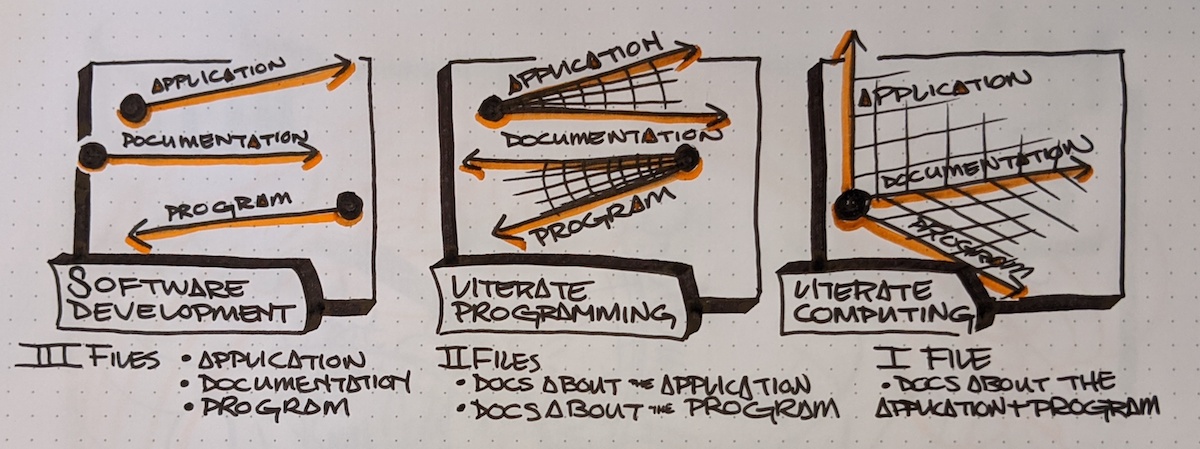 APPLICATION
DOCUMENTATION
PROGRAM
SOFTWARE
DEVELOPMENT
III FILES
• APPLICATION
• DOCUMENTATION
• PROGRAM
APPLICATION
DOCUMENTATION
PROGRAM
LITERATE
PROGRAMMING
II FILES
• DOCS ABOUT THE APPLICATION
• DOCS ABOUT THE PROGRAM
APPLICATION
DOCUMENTATION
PROGRAM
LITERATE
COMPUTING
I FILE
• DOCS ABOUT THE
APPLICATION + PROGRAM